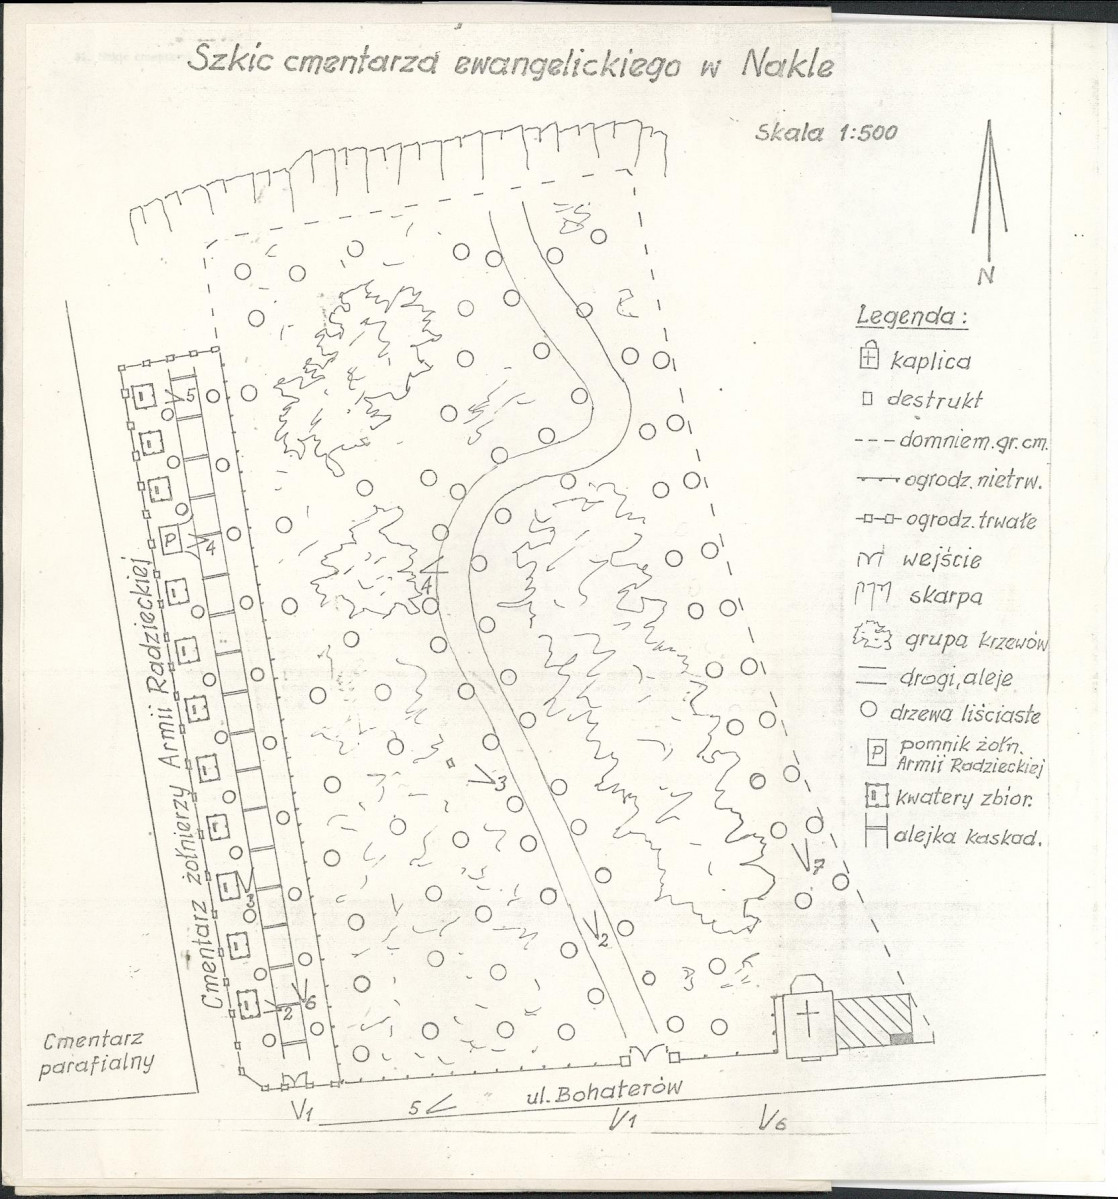 Szkic cmentarza ewangelickiego w Nakle
Skala 1:500
N
Legenda:
kaplica
destrukt
domniem. gr. cm.
ogrodz. nietrw.
ogrodz. trwałe
wejście
skarpa
grupa krzewów
drogi, aleje
drzewa liściaste
P pomnik żołn.
Armii Radzieckiej
kwatery zbior.
alejka kaskad.
Cmentarz żołnierzy Armii Radzieckiej
5
P
4
4
3
3
7
2
2
6
Cmentarz
parafialny
ul. Bohaterów
1
5
1
6